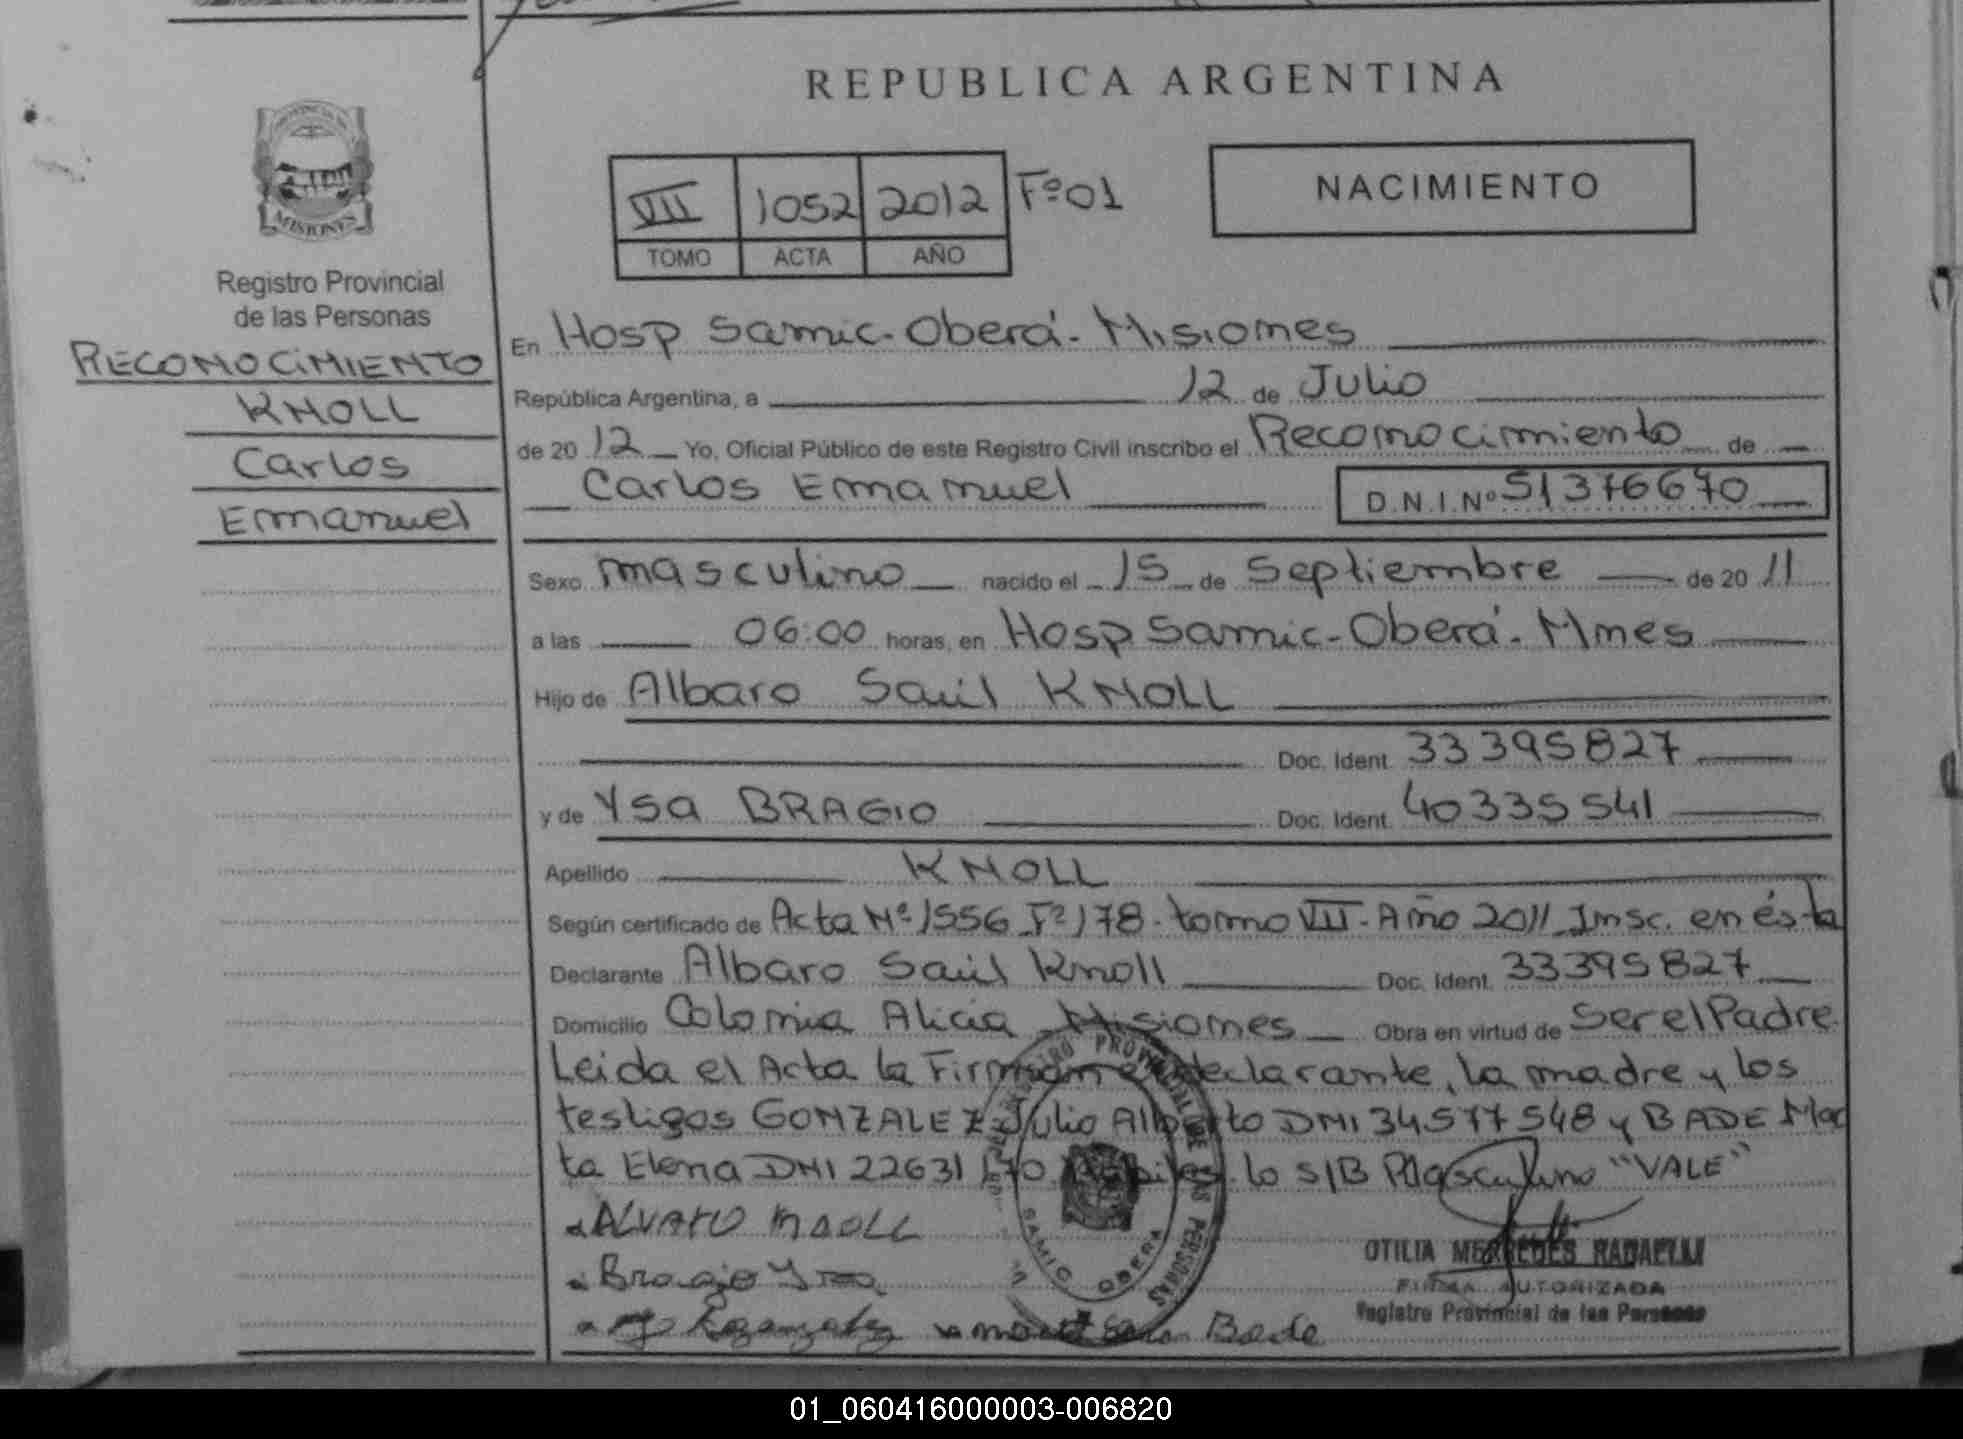 REPUBLICA ARGENTINA
PROVINCIA DE
MISIONES
Registro Provincial
de las Personas
RECONOCIMIENTO
KNOLL
Carlos
Emmanuel
VII 1052 2012 Fº 01
TOMO ACTA AÑO
NACIMIENTO
En Hosp Samic - Oberá - Misiones
República Argentina, a 12 de Julio
de 20 12 Yo, Oficial Público de este Registro Civil inscribo el Reconocimiento de
Carlos Emmanuel D.N.I.Nº 51376670
Sexo masculino nacido el 15 de Septiembre de 20 11
a las 06:00 horas, en Hosp Samic - Oberá - Mnes
Hijo de Albaro Saúl KNOLL
Doc. Ident. 33395827
y de Ysa BRAGIO Doc. Ident. 40335541
Apellido KNOLL
Según certificado de Acta Nº 1556 Fº 178 - tomo VII - Año 2011 Insc. en ésta
Declarante Albaro Saúl Knoll Doc. Ident. 33395827
Domicilio Colonia Alicia Misiones Obra en virtud de Ser el Padre
Leida el Acta la Firman el declarante, la madre y los
testigos GONZALEZ Julio Alberto DNI 34577548 y BADE Mar
ta Elena DNI 22631170 lo S/B Masculino "VALE"
ALVARO KNOLL
Bragio Ysa
Bade
REGISTRO PROVINCIAL DE LAS PERSONAS
SAMIC OBERA
OTILIA MERCEDES RADAELLI
FIRMA AUTORIZADA
Registro Provincial de las Personas
01_060416000003-006820